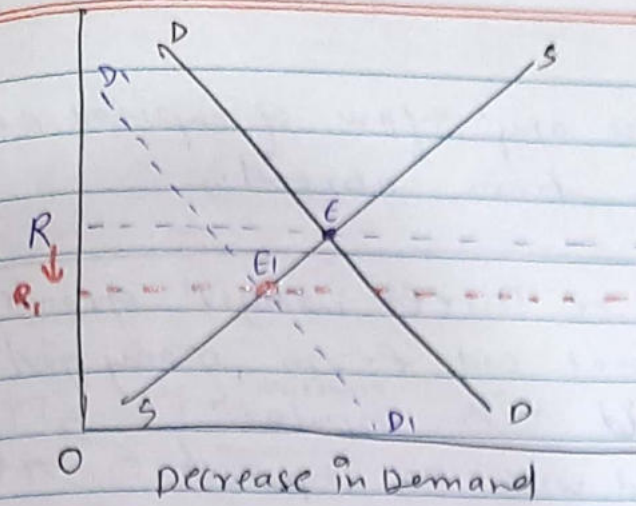 D
S
D1
E
R
E1
R1
S
D1
D
O
Decrease in Demand